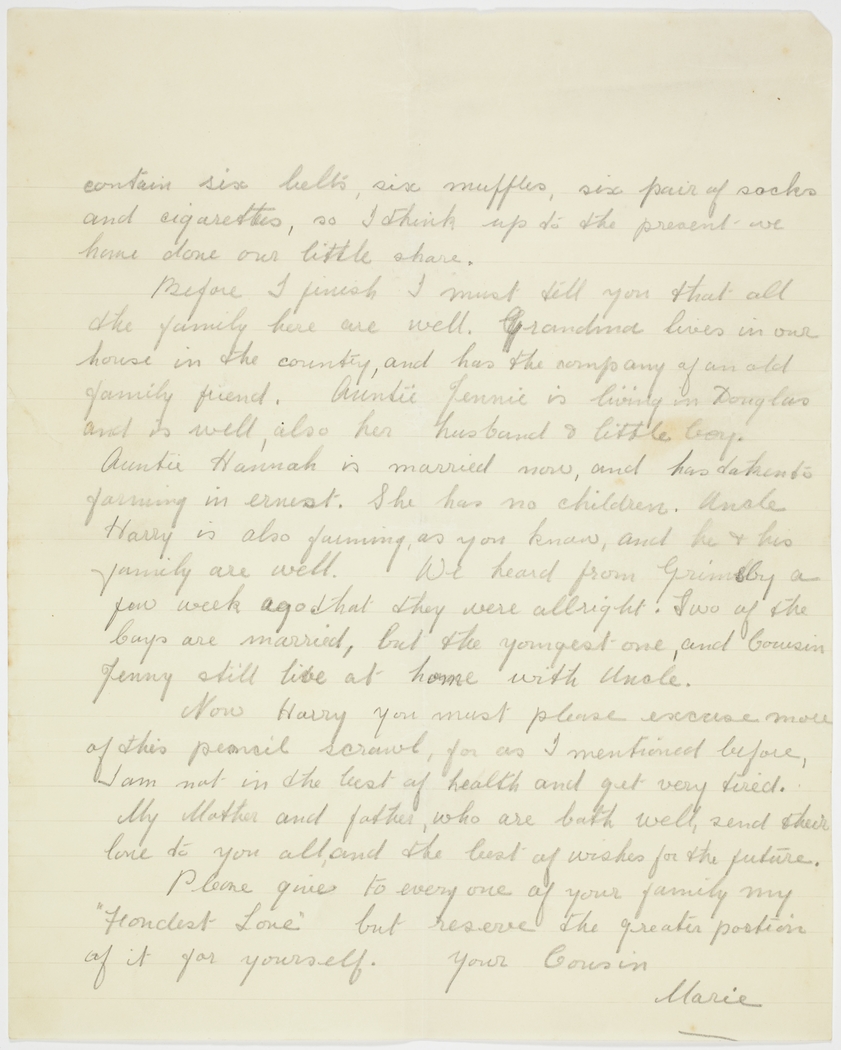 contain six belts, six muffles, six pair of socks
and cigarettes, so I think up to the present we
have done our little share.
Before I finish I must tell you that all
the family here are well. Grandma lives in our
house in the country, and has the company of an old
family friend. Auntie Jennie is living in Douglas
and is well, also her husband & little boy.
Auntie Hannah is married now, and has taken to
farming in ernest. She has no children. Uncle
Harry is also farming, as you know, and he & his
family are well. We heard from Grimsby a
few week ago that they were allright. Two of the
boys are married, but the youngest one, and Cousin
Jenny still live at home with Uncle.
Now Harry you must please excuse more
of this pencil scrawl, for as I mentioned before,
I am not in the best of health and get very tired.
My Mother and father, who are both well, send their
love to you all, and the best of wishes for the future.
Please give to every one of your family my
"Fondest Love" but reserve the greater portion
of it for yourself. Your Cousin
Marie